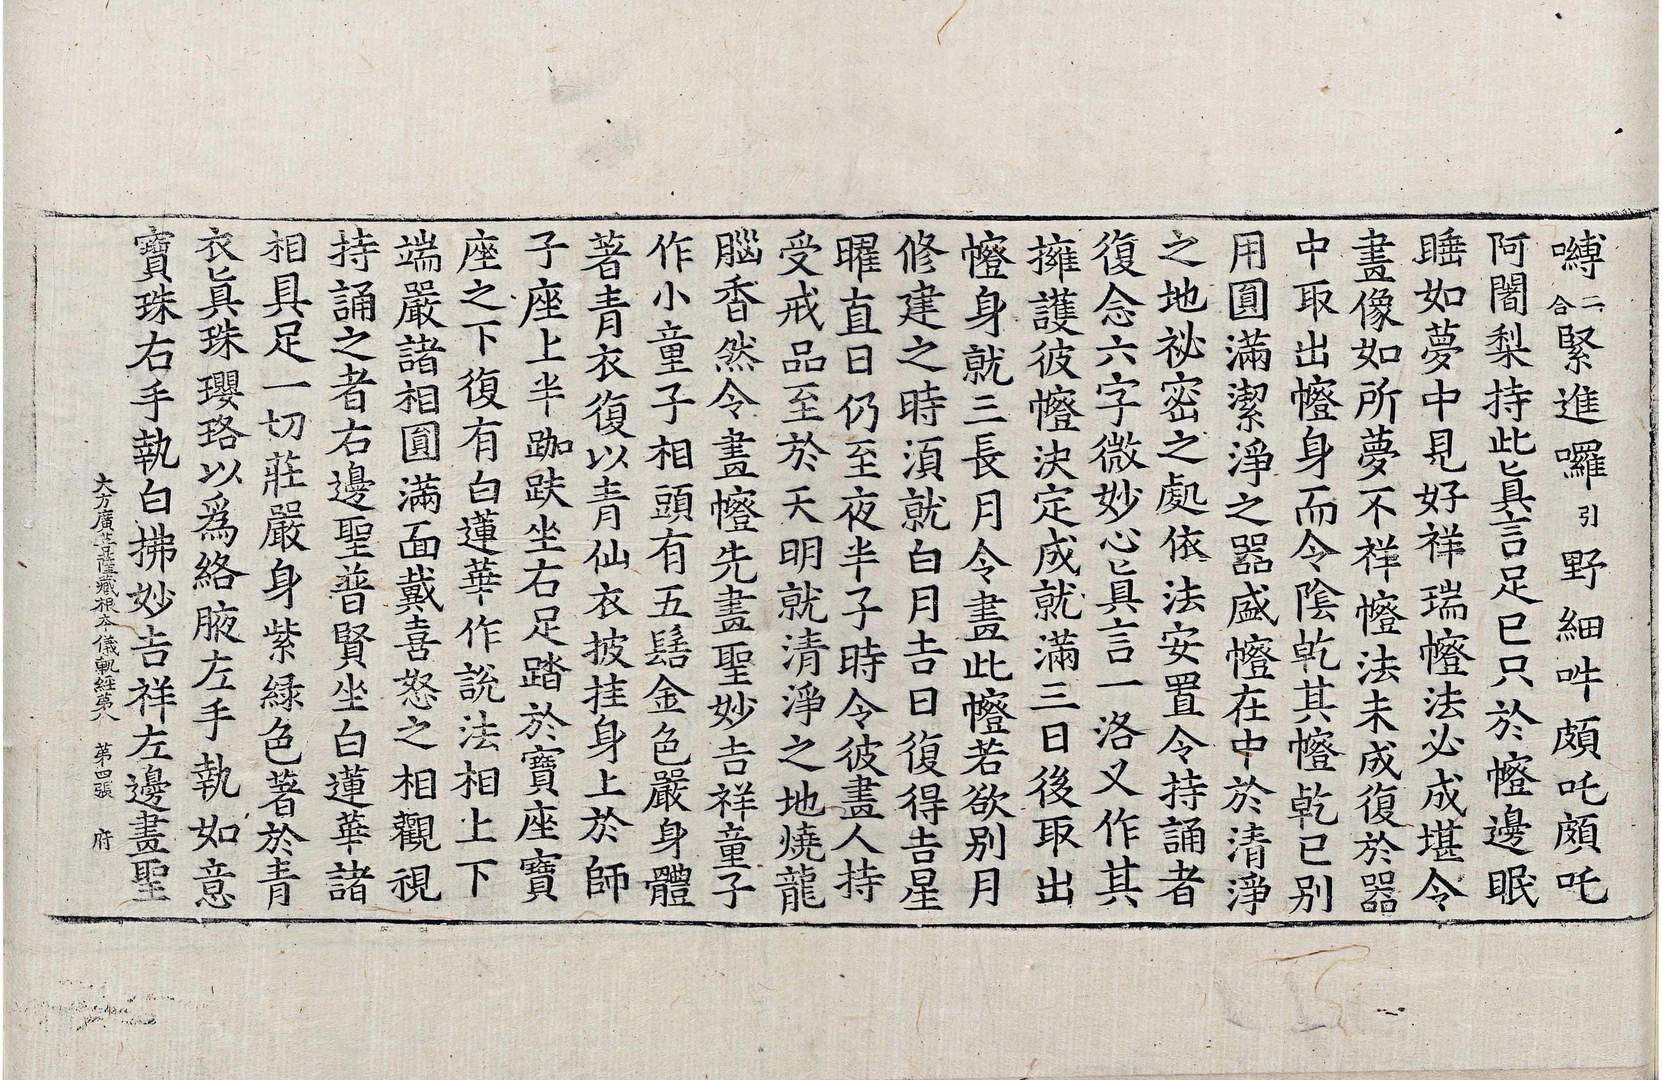 嚩二合緊進囉引野細吽頗吒頗吒
阿闍梨持此真言足已只於㡧邊眠
睡如夢中見好祥瑞㡧法必成堪令
畫像如所夢不祥㡧法未成復於器
中取出㡧身而令陰乾其㡧乾已别
用圓滿潔淨之器盛㡧在中於清淨
之地祕密之處依法安置令持誦者
復念六字微妙心真言一洛又作其
擁護彼㡧決定成就滿三日後取出
㡧身就三長月令畫此㡧若欲别月
修建之時湏就白月吉日復得吉星
曜直日仍至夜半子時令彼畫人持
受戒品至於天明就清淨之地燒龍
腦香然令畫㡧先畫聖妙吉祥童子
作小童子相頭有五髻金色嚴身體
著青衣復以青仙衣披挂身上於師
子座上半跏趺坐右足踏於寶座寶
座之下復有白蓮華作說法相上下
端嚴諸相圓滿面戴喜怒之相觀視
持誦之者右邊聖普賢坐白蓮華諸
相具足一切莊嚴身紫緑色著於青
衣真珠瓔珞以爲絡腋左手執如意
寶珠右手執白拂妙吉祥左邊畫聖
大方廣菩薩藏根本儀軌經第八 第四張 府